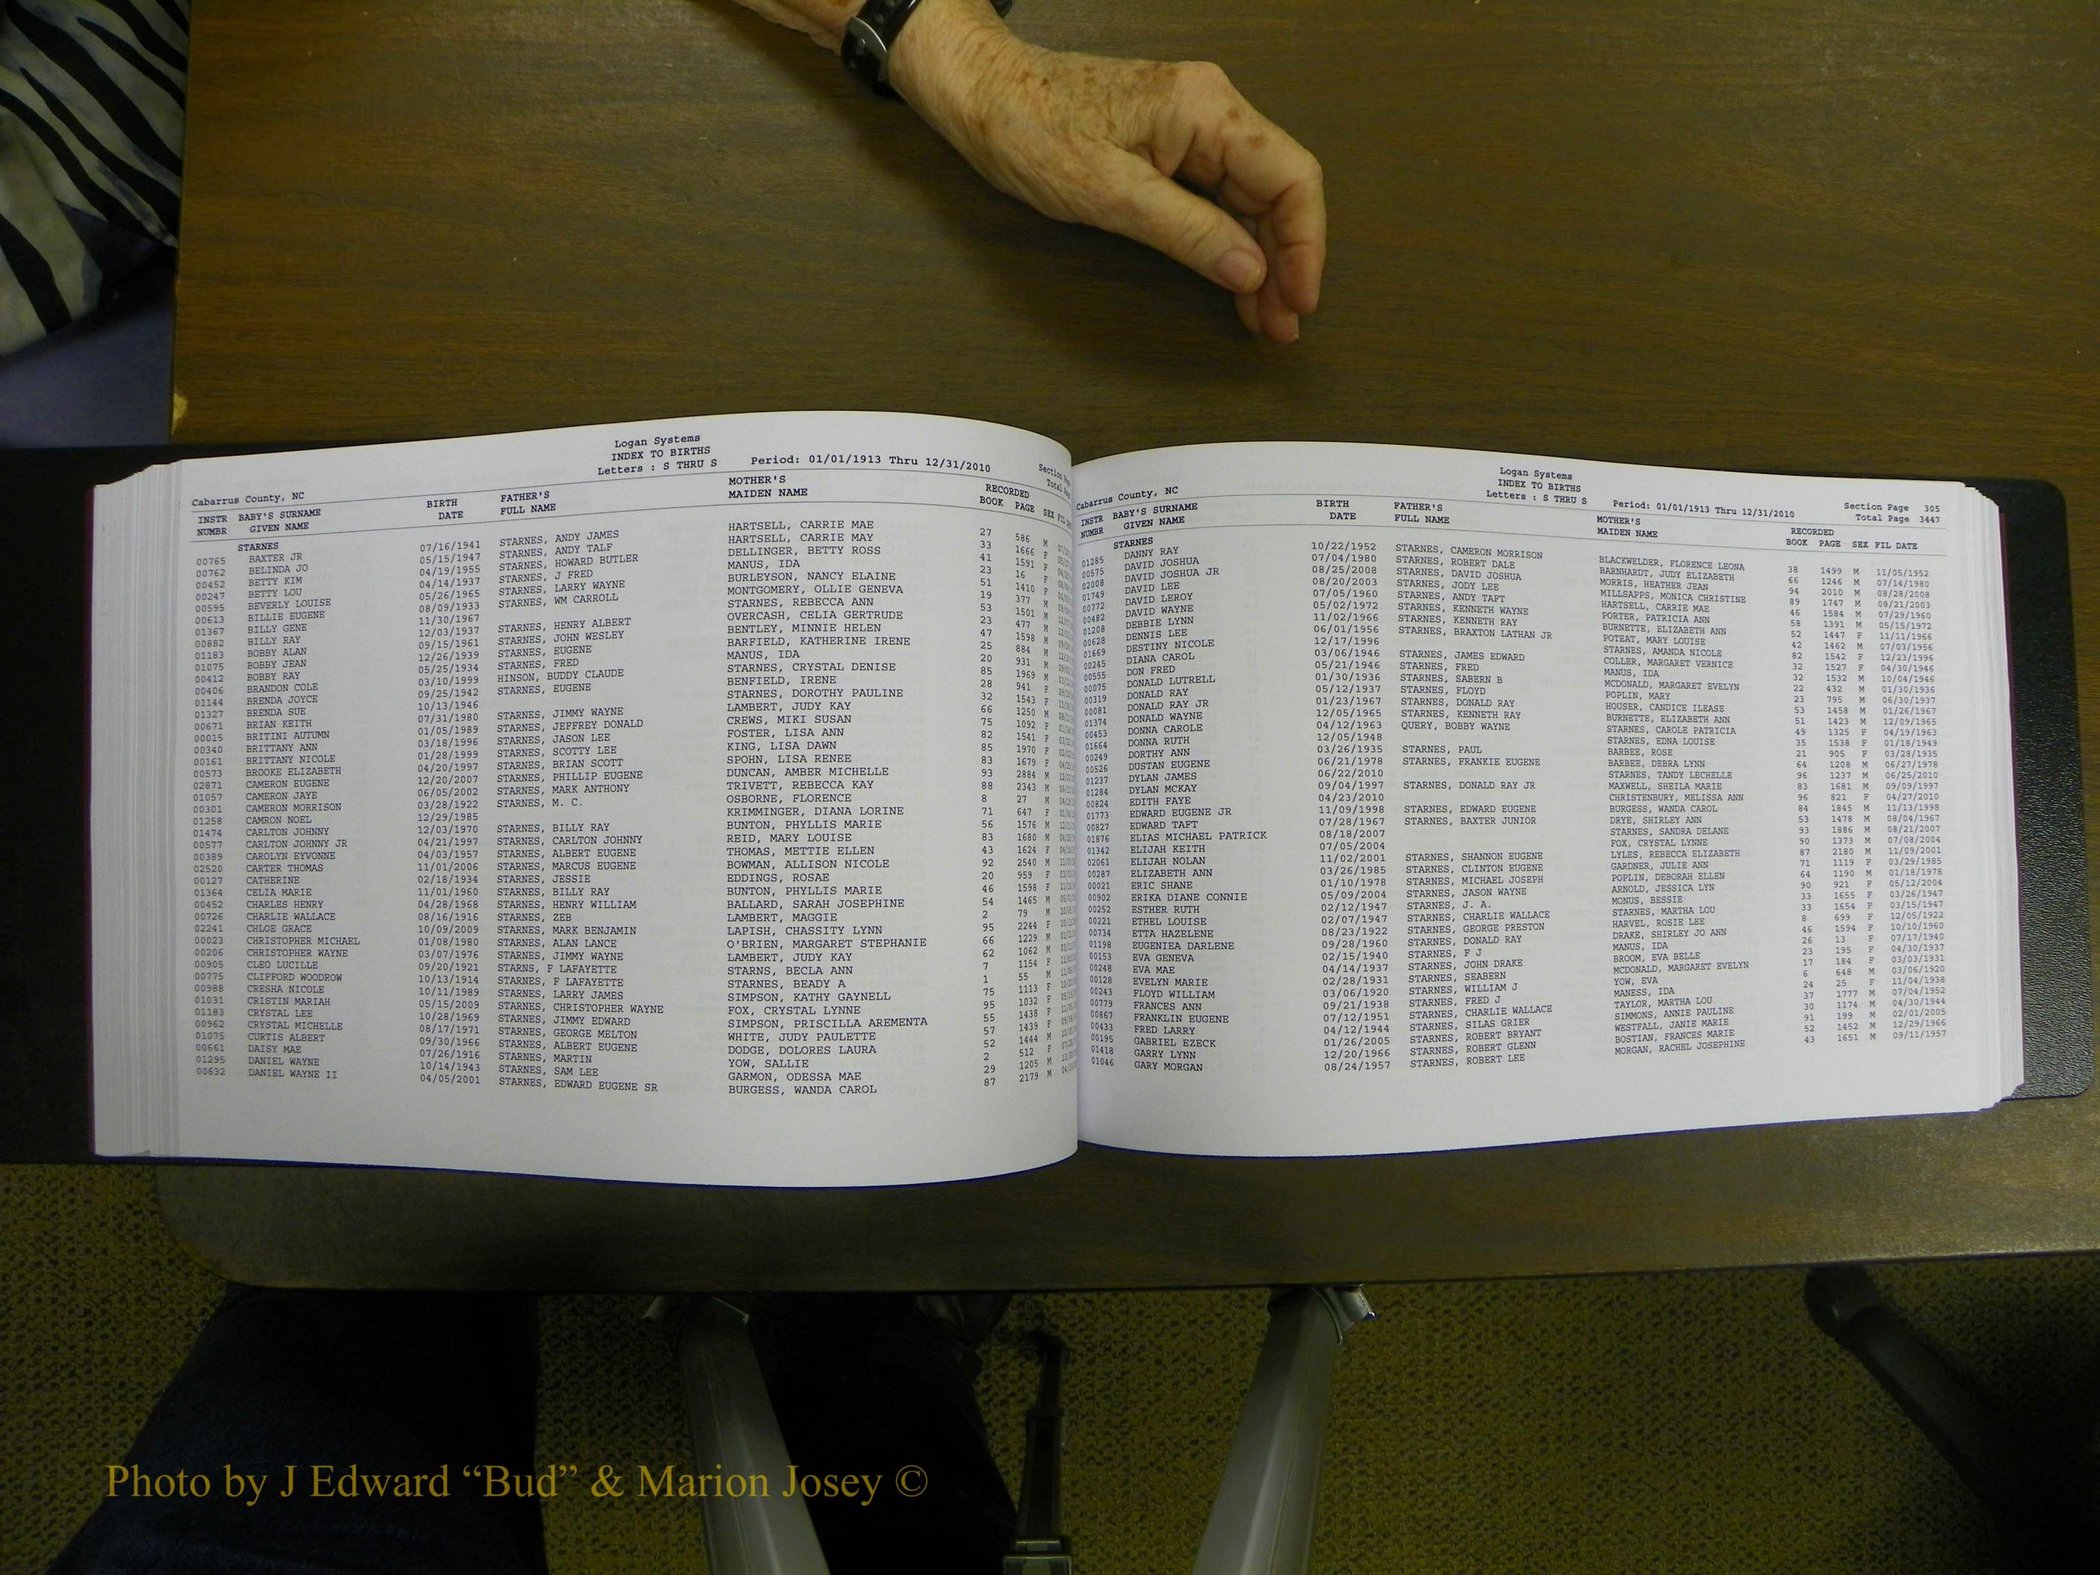 Logan Systems
INDEX TO BIRTHS
Letters : S THRU S Period: 01/01/1913 Thru 12/31/2010
Cabarrus County, NC
INSTR BABY'S SURNAME BIRTH FATHER'S MOTHER'S RECORDED
NUMBR GIVEN NAME DATE FULL NAME MAIDEN NAME BOOK PAGE SEX
STARNES
00765 BAXTER JR 07/16/1941 STARNES, ANDY JAMES HARTSELL, CARRIE MAE 27 586 M
00762 BELINDA JO 05/15/1947 STARNES, ANDY TALF HARTSELL, CARRIE MAY 33 1666 F
00452 BETTY KIM 04/19/1955 STARNES, HOWARD BUTLER DELLINGER, BETTY ROSS 41 1591 F
00247 BETTY LOU 04/14/1937 STARNES, J FRED MANUS, IDA 23 16 F
00595 BEVERLY LOUISE 05/26/1965 STARNES, LARRY WAYNE BURLEYSON, NANCY ELAINE 51 1410 F
00613 BILLIE EUGENE 08/09/1933 STARNES, WM CARROLL MONTGOMERY, OLLIE GENEVA 19 377 M
01367 BILLY GENE 11/30/1967 STARNES, REBECCA ANN 53 1501 M
00882 BILLY RAY 12/03/1937 STARNES, HENRY ALBERT OVERCASH, CELIA GERTRUDE 23 477 M
01183 BOBBY ALAN 09/15/1961 STARNES, JOHN WESLEY BENTLEY, MINNIE HELEN 47 1598 M
01075 BOBBY JEAN 12/26/1939 STARNES, EUGENE BARFIELD, KATHERINE IRENE 25 884 M
00412 BOBBY RAY 05/25/1934 STARNES, FRED MANUS, IDA 20 931 M
00406 BRANDON COLE 03/10/1999 HINSON, BUDDY CLAUDE STARNES, CRYSTAL DENISE 85 1969 M
01144 BRENDA JOYCE 09/25/1942 STARNES, EUGENE BENFIELD, IRENE 28 941 F
01327 BRENDA SUE 10/13/1946 STARNES, DOROTHY PAULINE 32 1543 F
00671 BRIAN KEITH 07/31/1980 STARNES, JIMMY WAYNE LAMBERT, JUDY KAY 66 1250 M
00015 BRITINI AUTUMN 01/05/1989 STARNES, JEFFREY DONALD CREWS, MIKI SUSAN 75 1092 F
00340 BRITTANY ANN 03/18/1996 STARNES, JASON LEE FOSTER, LISA ANN 82 1541 F
00161 BRITTANY NICOLE 01/28/1999 STARNES, SCOTTY LEE KING, LISA DAWN 85 1970 F
00573 BROOKE ELIZABETH 04/20/1997 STARNES, BRIAN SCOTT SPOHN, LISA RENEE 83 1679 F
02871 CAMERON EUGENE 12/20/2007 STARNES, PHILLIP EUGENE DUNCAN, AMBER MICHELLE 93 2884 M
01057 CAMERON JAYE 06/05/2002 STARNES, MARK ANTHONY TRIVETT, REBECCA KAY 88 2343 M
00301 CAMERON MORRISON 03/28/1922 STARNES, M. C. OSBORNE, FLORENCE 8 27 M
01258 CAMRON NOEL 12/29/1985 KRIMMINGER, DIANA LORINE 71 647 F
01474 CARLTON JOHNNY 12/03/1970 STARNES, BILLY RAY BUNTON, PHYLLIS MARIE 56 1576 M
00577 CARLTON JOHNNY JR 04/21/1997 STARNES, CARLTON JOHNNY REID, MARY LOUISE 83 1680 M
00389 CAROLYN EYVONNE 04/03/1957 STARNES, ALBERT EUGENE THOMAS, METTIE ELLEN 43 1624 F
02520 CARTER THOMAS 11/01/2006 STARNES, MARCUS EUGENE BOWMAN, ALLISON NICOLE 92 2540 M
00127 CATHERINE 02/18/1934 STARNES, JESSIE EDDINGS, ROSAE 20 959 F
01364 CELIA MARIE 11/01/1960 STARNES, BILLY RAY BUNTON, PHYLLIS MARIE 46 1598 F
00452 CHARLES HENRY 04/28/1968 STARNES, HENRY WILLIAM BALLARD, SARAH JOSEPHINE 54 1465 M
00726 CHARLIE WALLACE 08/16/1916 STARNES, ZEB LAMBERT, MAGGIE 2 79 M
02241 CHLOE GRACE 10/09/2009 STARNES, MARK BENJAMIN LAPISH, CHASSITY LYNN 95 2244 F
00023 CHRISTOPHER MICHAEL 01/08/1980 STARNES, ALAN LANCE O'BRIEN, MARGARET STEPHANIE 66 1229 M
00206 CHRISTOPHER WAYNE 03/07/1976 STARNES, JIMMY WAYNE LAMBERT, JUDY KAY 62 1062 M
00905 CLEO LUCILLE 09/20/1921 STARNS, F LAFAYETTE STARNS, BECLA ANN 7 1154 F
00775 CLIFFORD WOODROW 10/13/1914 STARNES, F LAFAYETTE STARNES, BEADY A 1 55 M
00988 CRESHA NICOLE 10/11/1989 STARNES, LARRY JAMES SIMPSON, KATHY GAYNELL 75 1113 F
01031 CRISTIN MARIAH 05/15/2009 STARNES, CHRISTOPHER WAYNE FOX, CRYSTAL LYNNE 95 1032 F
01183 CRYSTAL LEE 10/28/1969 STARNES, JIMMY EDWARD SIMPSON, PRISCILLA AREMENTA 55 1438 F
00962 CRYSTAL MICHELLE 08/17/1971 STARNES, GEORGE MELTON WHITE, JUDY PAULETTE 57 1439 F
01075 CURTIS ALBERT 09/30/1966 STARNES, ALBERT EUGENE DODGE, DOLORES LAURA 52 1444 M
00661 DAISY MAE 07/26/1916 STARNES, MARTIN YOW, SALLIE 2 512 F
01295 DANIEL WAYNE 10/14/1943 STARNES, SAM LEE GARMON, ODESSA MAE 29 1205 M
00632 DANIEL WAYNE II 04/05/2001 STARNES, EDWARD EUGENE SR BURGESS, WANDA CAROL 87 2179 M
Logan Systems
INDEX TO BIRTHS
Letters : S THRU S Period: 01/01/1913 Thru 12/31/2010
Section Page 305
Total Page 3447
Cabarrus County, NC
INSTR BABY'S SURNAME BIRTH FATHER'S MOTHER'S RECORDED
NUMBR GIVEN NAME DATE FULL NAME MAIDEN NAME BOOK PAGE SEX FIL DATE
STARNES
01285 DANNY RAY 10/22/1952 STARNES, CAMERON MORRISON BLACKWELDER, FLORENCE LEONA 38 1499 M 11/05/1952
00575 DAVID JOSHUA 07/04/1980 STARNES, ROBERT DALE BARNHARDT, JUDY ELIZABETH 66 1246 M 07/14/1980
02008 DAVID JOSHUA JR 08/25/2008 STARNES, DAVID JOSHUA MORRIS, HEATHER JEAN 94 2010 M 08/28/2008
01749 DAVID LEE 08/20/2003 STARNES, JODY LEE MILLSAPPS, MONICA CHRISTINE 89 1747 M 08/21/2003
00772 DAVID LEROY 07/05/1960 STARNES, ANDY TAFT HARTSELL, CARRIE MAE 46 1584 M 07/29/1960
00482 DAVID WAYNE 05/02/1972 STARNES, KENNETH WAYNE PORTER, PATRICIA ANN 58 1391 M 05/15/1972
01208 DEBBIE LYNN 11/02/1966 STARNES, KENNETH RAY BURNETTE, ELIZABETH ANN 52 1447 F 11/11/1966
00628 DENNIS LEE 06/01/1956 STARNES, BRAXTON LATHAN JR POTEAT, MARY LOUISE 42 1462 M 07/03/1956
01669 DESTINY NICOLE 12/17/1996 STARNES, AMANDA NICOLE 82 1542 F 12/23/1996
00245 DIANA CAROL 03/06/1946 STARNES, JAMES EDWARD COLLER, MARGARET VERNICE 32 1527 F 04/30/1946
00555 DON FRED 05/21/1946 STARNES, FRED MANUS, IDA 32 1532 M 10/04/1946
00075 DONALD LUTRELL 01/30/1936 STARNES, SABERN B MCDONALD, MARGARET EVELYN 22 432 M 01/30/1936
00319 DONALD RAY 05/12/1937 STARNES, FLOYD POPLIN, MARY 23 795 M 06/30/1937
00081 DONALD RAY JR 01/23/1967 STARNES, DONALD RAY HOUSER, CANDICE ILEASE 53 1458 M 01/26/1967
01374 DONALD WAYNE 12/05/1965 STARNES, KENNETH RAY BURNETTE, ELIZABETH ANN 51 1423 M 12/09/1965
00453 DONNA CAROLE 04/12/1963 QUERY, BOBBY WAYNE STARNES, CAROLE PATRICIA 49 1325 F 04/19/1963
01664 DONNA RUTH 12/05/1948 STARNES, EDNA LOUISE 35 1538 F 01/18/1949
00249 DORTHY ANN 03/26/1935 STARNES, PAUL BARBEE, ROSE 21 905 F 03/28/1935
00526 DUSTAN EUGENE 06/21/1978 STARNES, FRANKIE EUGENE BARBEE, DEBRA LYNN 64 1208 M 06/27/1978
01237 DYLAN JAMES 06/22/2010 STARNES, TANDY LECHELLE 96 1237 M 06/25/2010
01284 DYLAN MCKAY 09/04/1997 STARNES, DONALD RAY JR MAXWELL, SHEILA MARIE 83 1681 M 09/09/1997
00824 EDITH FAYE 04/23/2010 CHRISTENBURY, MELISSA ANN 96 821 F 04/27/2010
01773 EDWARD EUGENE JR 11/09/1998 STARNES, EDWARD EUGENE BURGESS, WANDA CAROL 84 1845 M 11/13/1998
00827 EDWARD TAFT 07/28/1967 STARNES, BAXTER JUNIOR DRYE, SHIRLEY ANN 53 1478 M 08/04/1967
01876 ELIAS MICHAEL PATRICK 08/18/2007 STARNES, SANDRA DELANE 93 1886 M 08/21/2007
01342 ELIJAH KEITH 07/05/2004 FOX, CRYSTAL LYNNE 90 1373 M 07/08/2004
02061 ELIJAH NOLAN 11/02/2001 STARNES, SHANNON EUGENE LYLES, REBECCA ELIZABETH 87 2180 M 11/09/2001
00287 ELIZABETH ANN 03/26/1985 STARNES, CLINTON EUGENE GARDNER, JULIE ANN 71 1119 F 03/29/1985
00021 ERIC SHANE 01/10/1978 STARNES, MICHAEL JOSEPH POPLIN, DEBORAH ELLEN 64 1190 M 01/18/1978
00902 ERIKA DIANE CONNIE 05/09/2004 STARNES, JASON WAYNE ARNOLD, JESSICA LYN 90 921 F 05/12/2004
00252 ESTHER RUTH 02/12/1947 STARNES, J. A. MONUS, BESSIE 33 1655 F 03/26/1947
00221 ETHEL LOUISE 02/07/1947 STARNES, CHARLIE WALLACE STARNES, MARTHA LOU 33 1654 F 03/15/1947
00734 ETTA HAZELENE 08/23/1922 STARNES, GEORGE PRESTON HARVEL, ROSIE LEE 8 699 F 12/05/1922
01198 EUGENIEA DARLENE 09/28/1960 STARNES, DONALD RAY DRAKE, SHIRLEY JO ANN 46 1594 F 10/10/1960
00153 EVA GENEVA 02/15/1940 STARNES, F J MANUS, IDA 26 13 F 07/17/1940
00248 EVA MAE 04/14/1937 STARNES, JOHN DRAKE BROOM, EVA BELLE 23 195 F 04/30/1937
00128 EVELYN MARIE 02/28/1931 STARNES, SEABERN MCDONALD, MARGARET EVELYN 17 184 F 03/03/1931
00243 FLOYD WILLIAM 03/06/1920 STARNES, WILLIAM J YOW, EVA 6 648 M 03/06/1920
00779 FRANCES ANN 09/21/1938 STARNES, FRED J MANESS, IDA 24 25 F 11/04/1938
00867 FRANKLIN EUGENE 07/12/1951 STARNES, CHARLIE WALLACE TAYLOR, MARTHA LOU 37 1777 M 07/04/1952
00433 FRED LARRY 04/12/1944 STARNES, SILAS GRIER SIMMONS, ANNIE PAULINE 30 1174 M 04/30/1944
00195 GABRIEL EZECK 01/26/2005 STARNES, ROBERT BRYANT WESTFALL, JANIE MARIE 91 199 M 02/01/2005
01418 GARRY LYNN 12/20/1966 STARNES, ROBERT GLENN BOSTIAN, FRANCES MARIE 52 1452 M 12/29/1966
01046 GARY MORGAN 08/24/1957 STARNES, ROBERT LEE MORGAN, RACHEL JOSEPHINE 43 1651 M 09/11/1957
Photo by J Edward “Bud” & Marion Josey ©